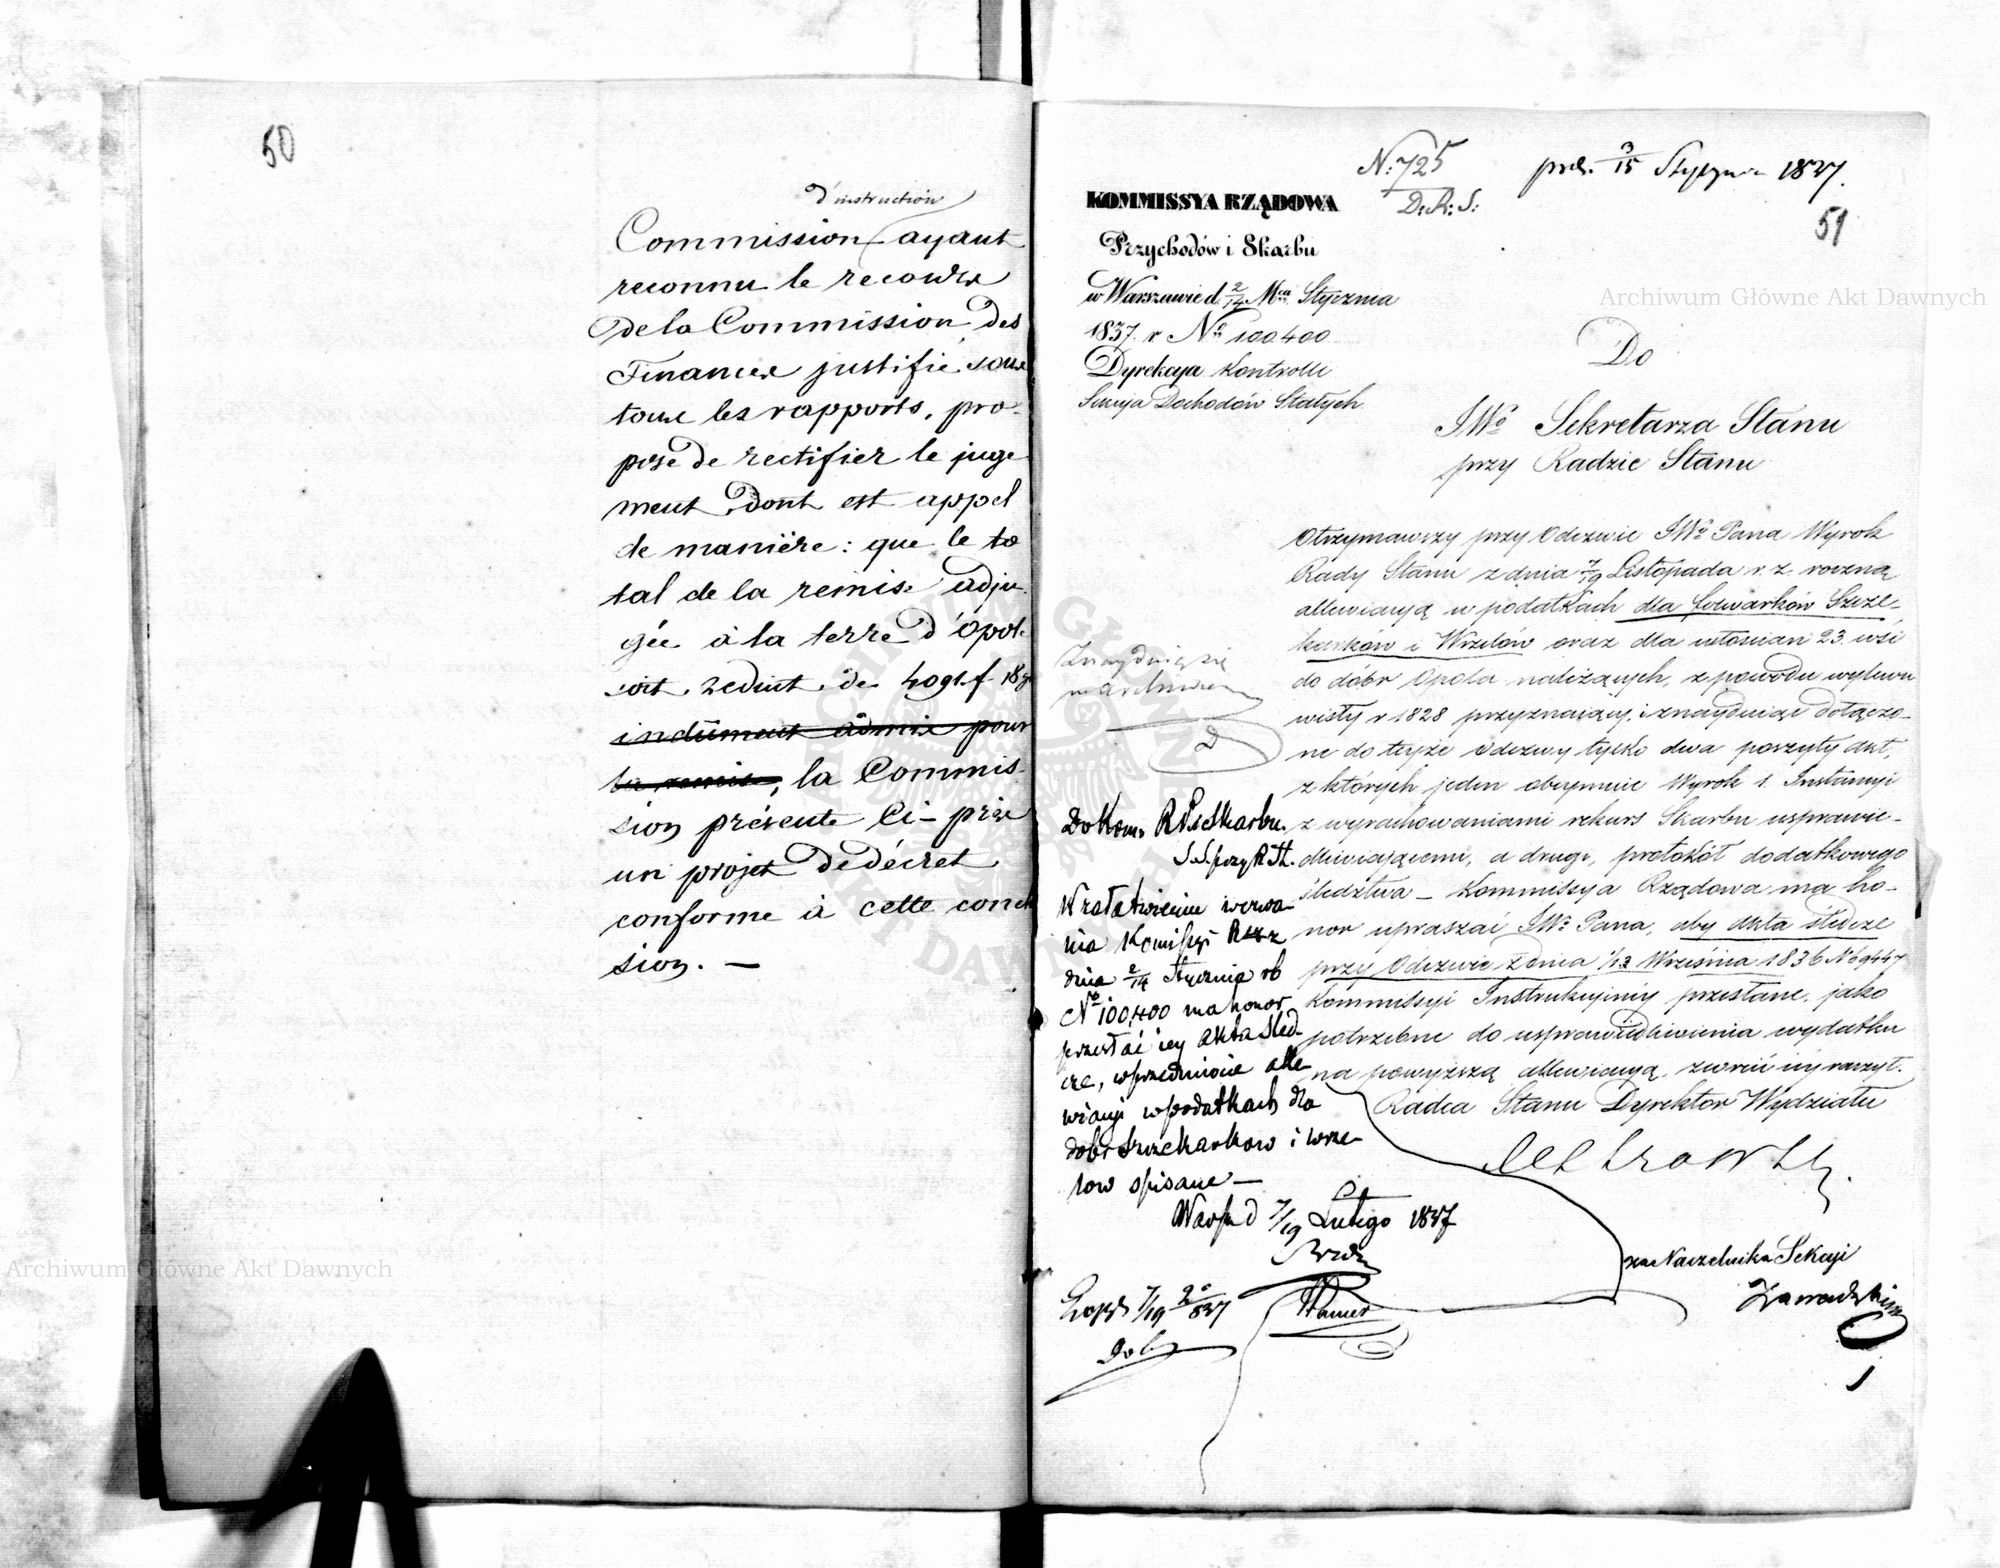 50
d'instruction
Commission ayant
reconnu le recours
de la Commission des
Finances justifié sous
tous les rapports, pro-
pose de rectifier le juge
ment dont est appel
de manière: que le to
tal de la remise adju-
gée à la terre d'Opol.
soit reduit de
indûment admis pour
la remise, la Commis-
sion présente ci-près
un projet de décret
conforme à cette conclu
sion. —
N: 725
D: R: S:
prds. 3/15 Stycznia 1837.
51
KOMMISSYA RZĄDOWA
Przychodów i Skarbu
w Warszawie d. 2/14 Mca Stycznia
1837 r No 100,400
Dyrekcya Kontrolli
Sekcyja Dochodów Stałych
Do
JWo Sekretarza Stanu
przy Radzie Stanu
Otrzymawszy przy Odezwie JWo Pana Wyrok
Rady Stanu z dnia 7/19 Listopada r. z. roczną
allewiacyą w podatkach dla folwarków Szcze-
karków i Wrzelów oraz dla włościan 23 wsi
do dóbr Opola należących, z powodu wylewu
wisły r 1828 przyznający, i znayduiąc dołączo-
ne do teyże Odezwy tylko dwa poszyty Akt,
z których jeden obeymuie Wyrok 1. Instancyi
z wyrachowaniami rekurs Skarbu usprawie-
dliwiaiącemi, a drugi, protokół dodatkowego
śledztwa — Kommissya Rządowa ma ho-
nor upraszać JWo Pana, aby Akta śledcze
przy Odezwie z dnia 1/13 Września 1836 No 69447
Kommissyi Instrukcyiney przesłane, jako
potrzebne do usprawiedliwienia wydatku
na powyższą allewiacyą, zwrócić iey raczył.
Radca Stanu Dyrektor Wydziału
za Naczelnika Sekcyi
Zawadzki
Znayduią się
w archiwum
Do Kom. R P i Skarbu.
S. S. przy R. St.
W załatwieniu wezwa-
nia Komissyi Rz z
dnia 2/14 Stycznia rb
No 100,400 ma honor
przesłać iey Akta śled-
cze, w przedmiocie alle
wiacyi w podatkach dla
dobr Szczekarkow i Wrze-
low spisane —
Warsz d 7/19 Lutego 1837
Archiwum Główne Akt Dawnych
Archiwum Główne Akt Dawnych
ARCHIWUM GŁÓWNE AKT DAWNYCH